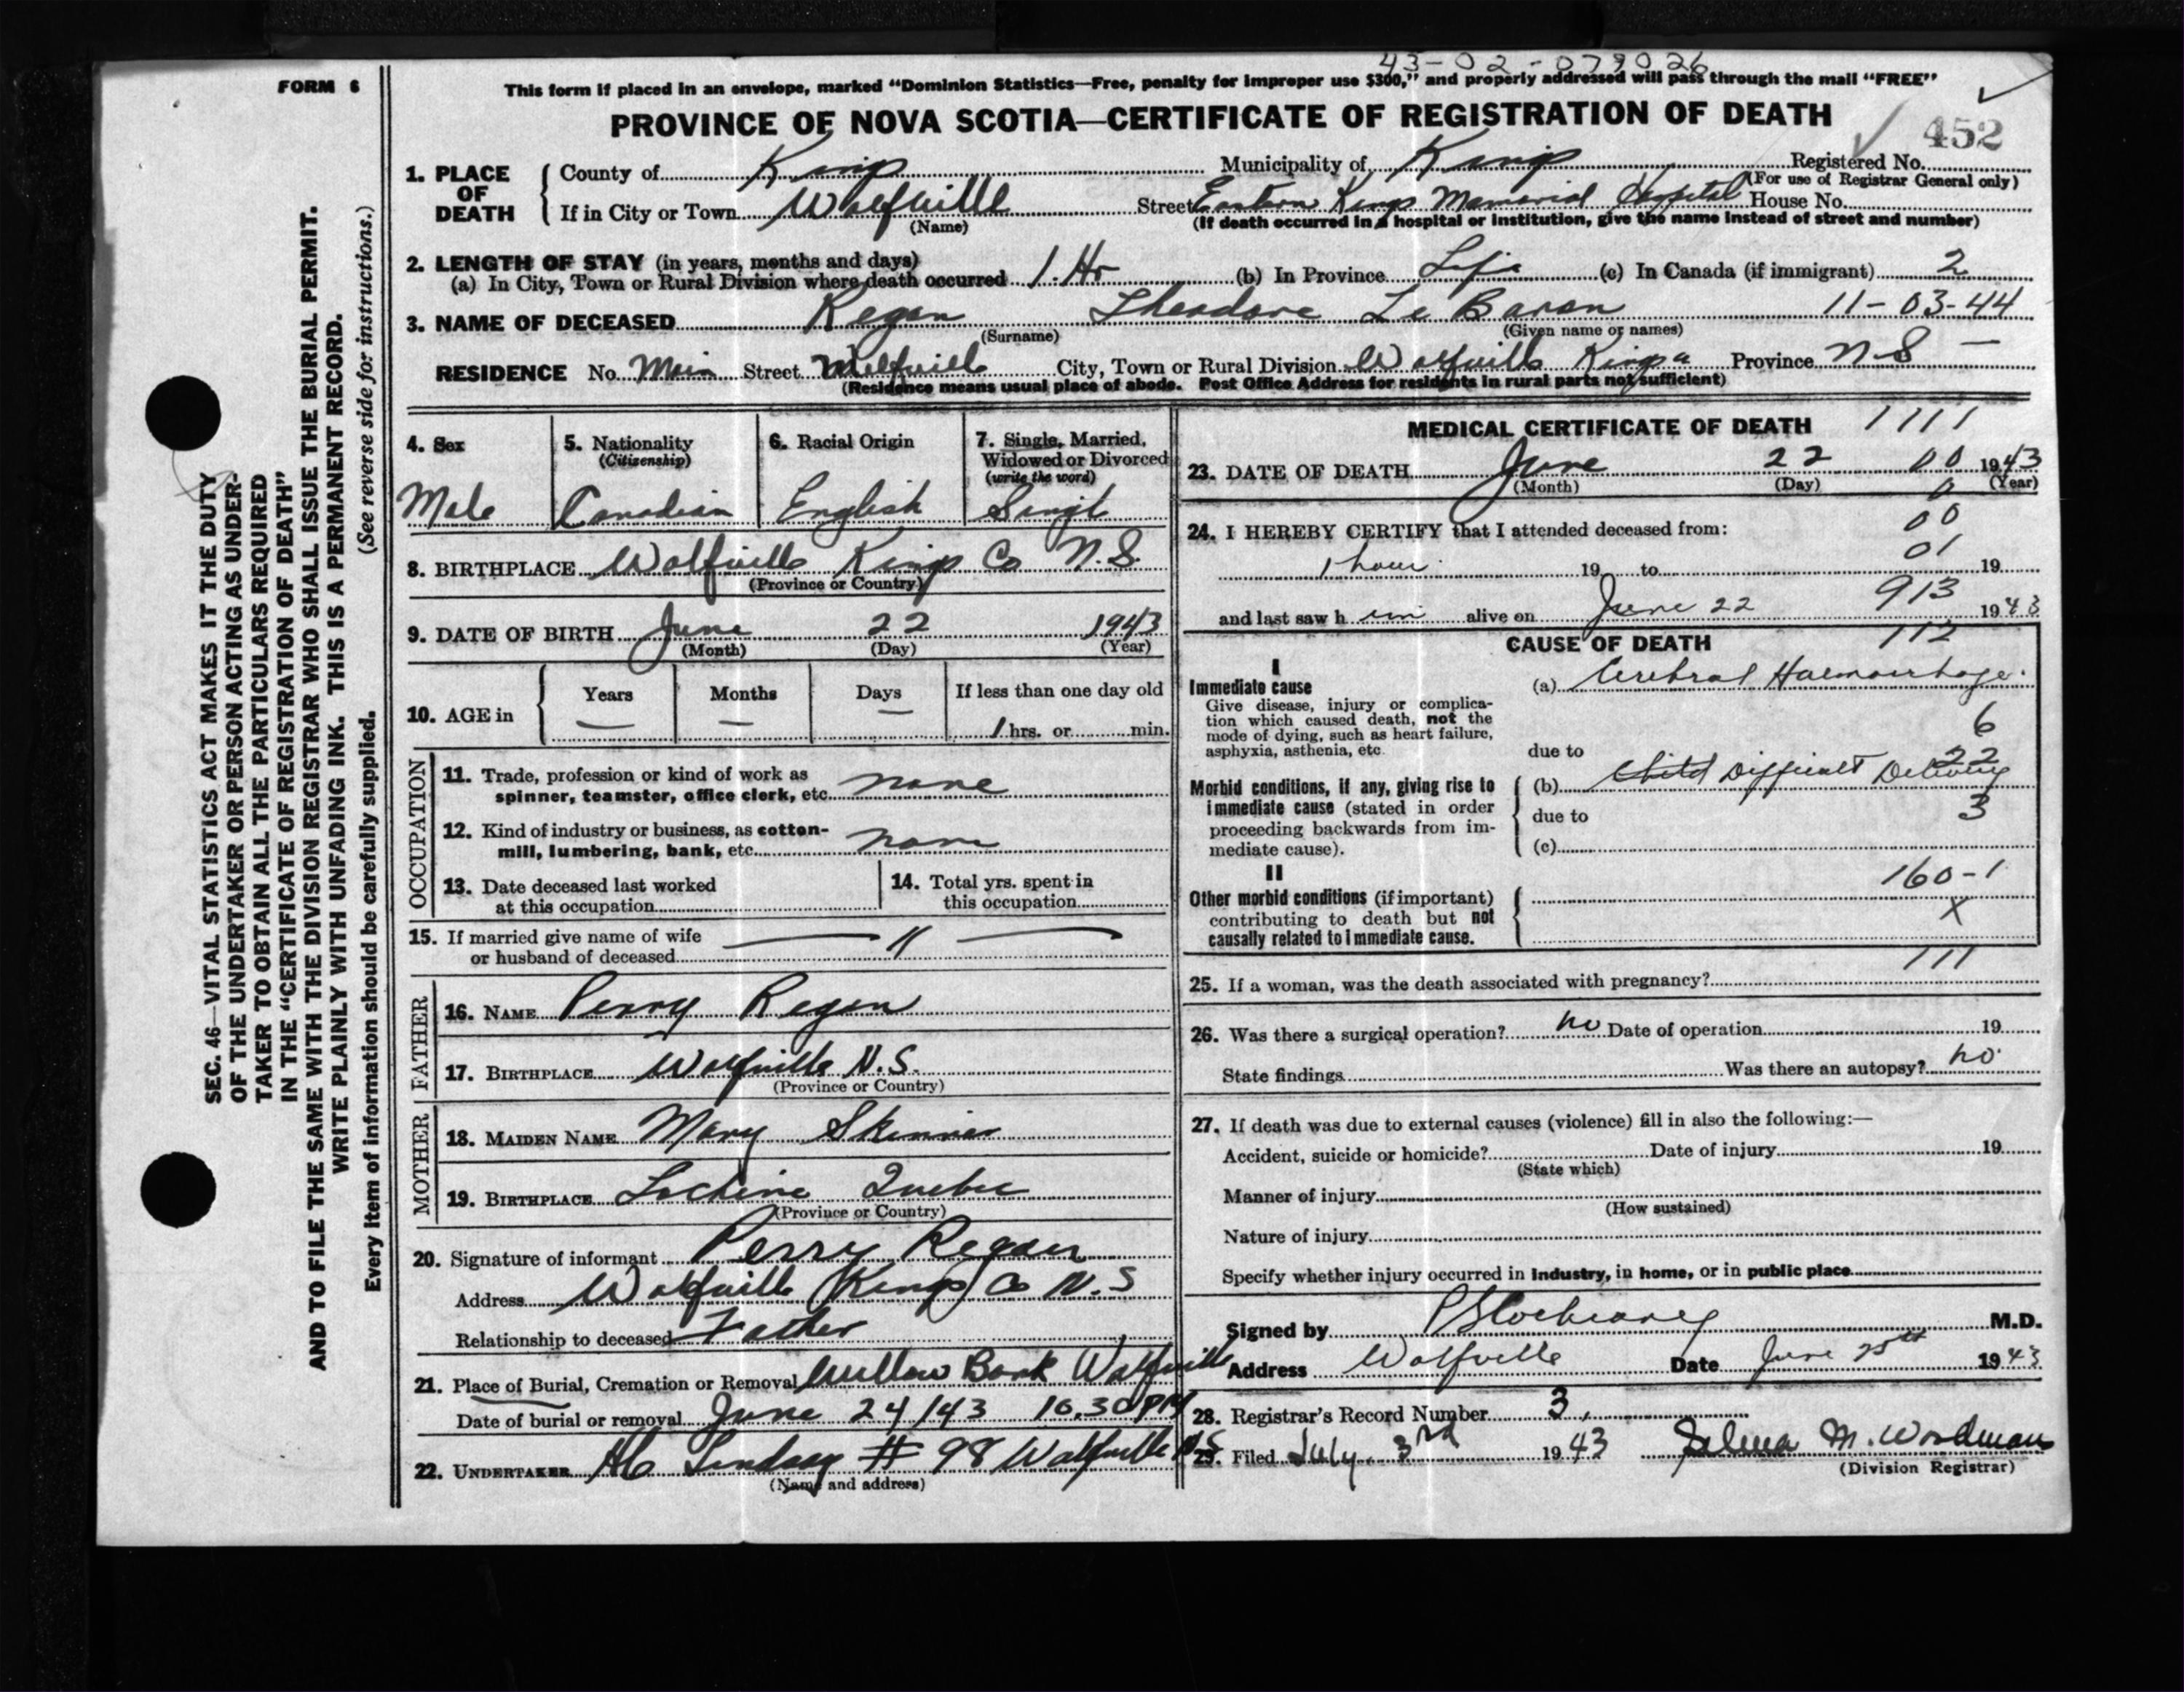 43-02-079026
FORM 6
This form if placed in an envelope, marked "Dominion Statistics—Free, penalty for improper use $300," and properly addressed will pass through the mail "FREE"
PROVINCE OF NOVA SCOTIA—CERTIFICATE OF REGISTRATION OF DEATH
452
1. PLACE OF DEATH County of Kings Municipality of Kings Registered No.
(For use of Registrar General only)
If in City or Town Wolfville Street Eastern Kings Memorial Hospital House No.
(Name) (If death occurred in a hospital or institution, give the name instead of street and number)
2. LENGTH OF STAY (in years, months and days)
(a) In City, Town or Rural Division where death occurred 1 Hr (b) In Province Life (c) In Canada (if immigrant) 2
3. NAME OF DECEASED Regan Theodore Le Baron 11-03-44
(Surname) (Given name or names)
RESIDENCE No. Main Street Wolfville City, Town or Rural Division Wolfville Kings Province N.S —
(Residence means usual place of abode. Post Office Address for residents in rural parts not sufficient)
4. Sex 5. Nationality (Citizenship) 6. Racial Origin 7. Single, Married, Widowed or Divorced (write the word)
Male Canadian English Single
8. BIRTHPLACE Wolfville Kings Co N.S.
(Province or Country)
9. DATE OF BIRTH June 22 1943
(Month) (Day) (Year)
10. AGE in Years Months Days If less than one day old
— — — 1 hrs. or min.
OCCUPATION
11. Trade, profession or kind of work as
spinner, teamster, office clerk, etc. none
12. Kind of industry or business, as cotton-
mill, lumbering, bank, etc. none
13. Date deceased last worked
at this occupation
14. Total yrs. spent in
this occupation
15. If married give name of wife
or husband of deceased
FATHER
16. NAME Perry Regan
17. BIRTHPLACE Wolfville N.S.
(Province or Country)
MOTHER
18. MAIDEN NAME Mary Skinner
19. BIRTHPLACE Lachine Quebec
(Province or Country)
20. Signature of informant Perry Regan
Address Wolfville (Kings) Co N.S
Relationship to deceased Father
21. Place of Burial, Cremation or Removal Willow Bank Wolfville
Date of burial or removal June 24/43 10.30 PM
22. UNDERTAKER Lindsay # 98 Wolfville N.S
(Name and address)
MEDICAL CERTIFICATE OF DEATH 1111
23. DATE OF DEATH June 22 00 1943
(Month) (Day) (Year)
0
24. I HEREBY CERTIFY that I attended deceased from: 00
01
1 hour 19 to 19
913
and last saw h im alive on June 22 1943
CAUSE OF DEATH 112
I
Immediate cause
Give disease, injury or complica-
tion which caused death, not the
mode of dying, such as heart failure,
asphyxia, asthenia, etc.
(a) Cerebral Haemorrhage.
6
due to
22
Morbid conditions, if any, giving rise to
immediate cause (stated in order
proceeding backwards from im-
mediate cause).
(b) Child Difficult Delivery
due to 3
(c)
II
Other morbid conditions (if important)
contributing to death but not
causally related to immediate cause.
160-1
X
111
25. If a woman, was the death associated with pregnancy?
26. Was there a surgical operation? no Date of operation 19
State findings Was there an autopsy? no
27. If death was due to external causes (violence) fill in also the following:—
Accident, suicide or homicide? Date of injury 19
(State which)
Manner of injury
(How sustained)
Nature of injury
Specify whether injury occurred in industry, in home, or in public place
Signed by M.D.
Address Wolfville Date June 25th 1943
28. Registrar's Record Number 3,
29. Filed July 3rd 1943 M. Woodman
(Division Registrar)
SEC. 46—VITAL STATISTICS ACT MAKES IT THE DUTY
OF THE UNDERTAKER OR PERSON ACTING AS UNDER-
TAKER TO OBTAIN ALL THE PARTICULARS REQUIRED
IN THE "CERTIFICATE OF REGISTRATION OF DEATH"
AND TO FILE THE SAME WITH THE DIVISION REGISTRAR WHO SHALL ISSUE THE BURIAL PERMIT.
WRITE PLAINLY WITH UNFADING INK. THIS IS A PERMANENT RECORD.
Every item of information should be carefully supplied. (See reverse side for instructions.)